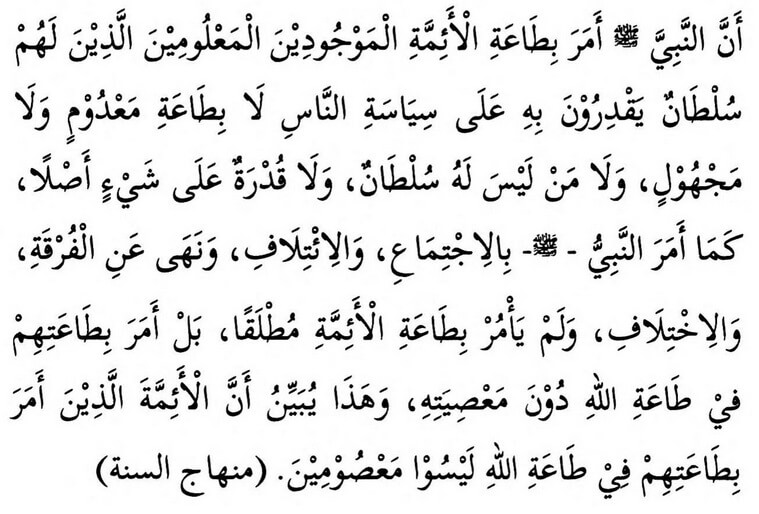 أَنَّ النَّبِيَّ ﷺ أَمَرَ بِطَاعَةِ الْأَئِمَّةِ الْمَوْجُودِيْنَ الْمَعْلُومِيْنَ الَّذِيْنَ لَهُمْ
سُلْطَانٌ يَقْدِرُوْنَ بِهِ عَلَى سِيَاسَةِ النَّاسِ لَا بِطَاعَةِ مَعْدُوْمٍ وَلَا
مَجْهُوْلٍ، وَلَا مَنْ لَيْسَ لَهُ سُلْطَانٌ، وَلَا قُدْرَةٌ عَلَى شَيْءٍ أَصْلًا،
كَمَا أَمَرَ النَّبِيُّ - ﷺ- بِالِاجْتِمَاعِ، وَالِائْتِلَافِ، وَنَهَى عَنِ الْفُرْقَةِ،
وَالِاخْتِلَافِ، وَلَمْ يَأْمُرْ بِطَاعَةِ الْأَئِمَّةِ مُطْلَقًا، بَلْ أَمَرَ بِطَاعَتِهِمْ
فِيْ طَاعَةِ اللهِ دُوْنَ مَعْصِيَتِهِ، وَهَذَا يُبَيِّنُ أَنَّ الْأَئِمَّةَ الَّذِيْنَ أَمَرَ
بِطَاعَتِهِمْ فِيْ طَاعَةِ اللهِ لَيْسُوْا مَعْصُوْمِيْنَ. (منهاج السنة)